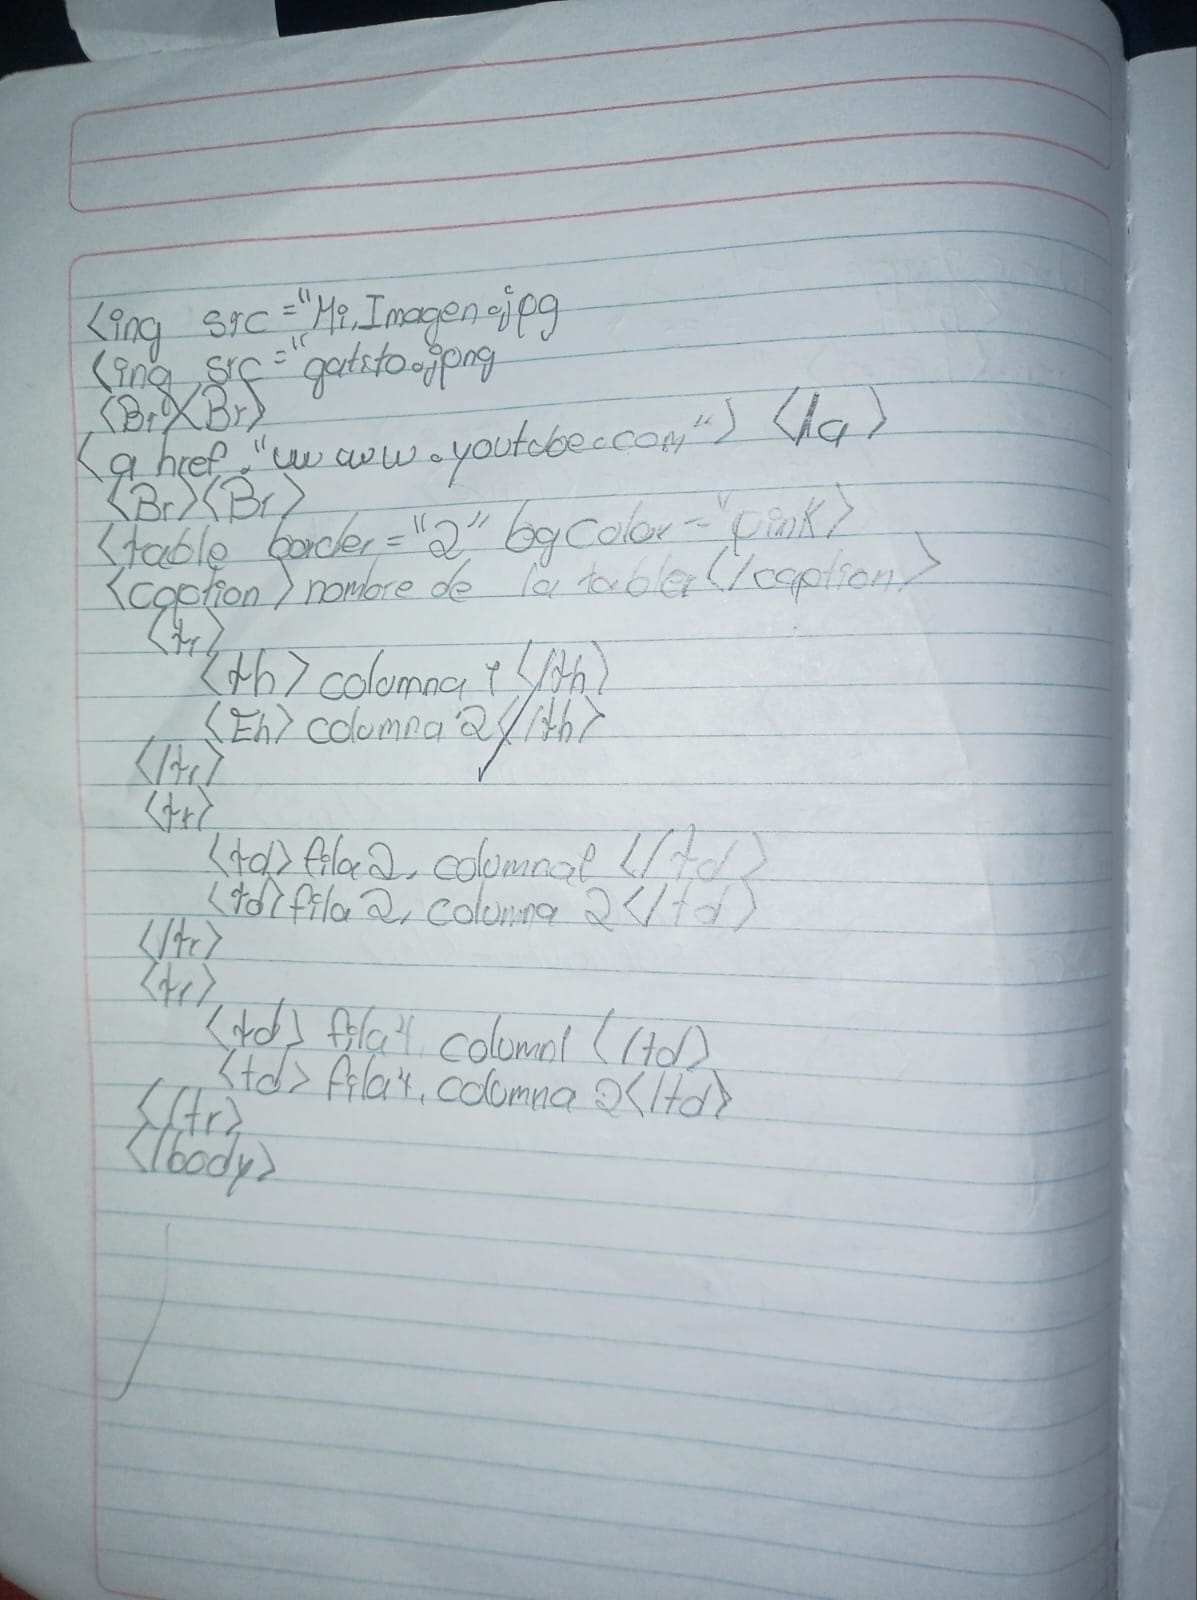 <ing src="Mi,Imagen.jpg
<ing src="gatsto.jpng
<Br><Br>
<a href="www.youtobe.com"> </a>
<Br><Br>
<table border="2" bgcolor="pink>
<caption>nombre de la tabla</caption>
<tr>
<th>columna 1</th>
<Eh>columna 2</th>
</tr>
<tr>
<td>fila 2, columna1</td>
<td>fila 2, columna 2</td>
</tr>
<tr>
<td>fila4, column1</td>
<td>fila4, columna 2</td>
</tr>
</body>